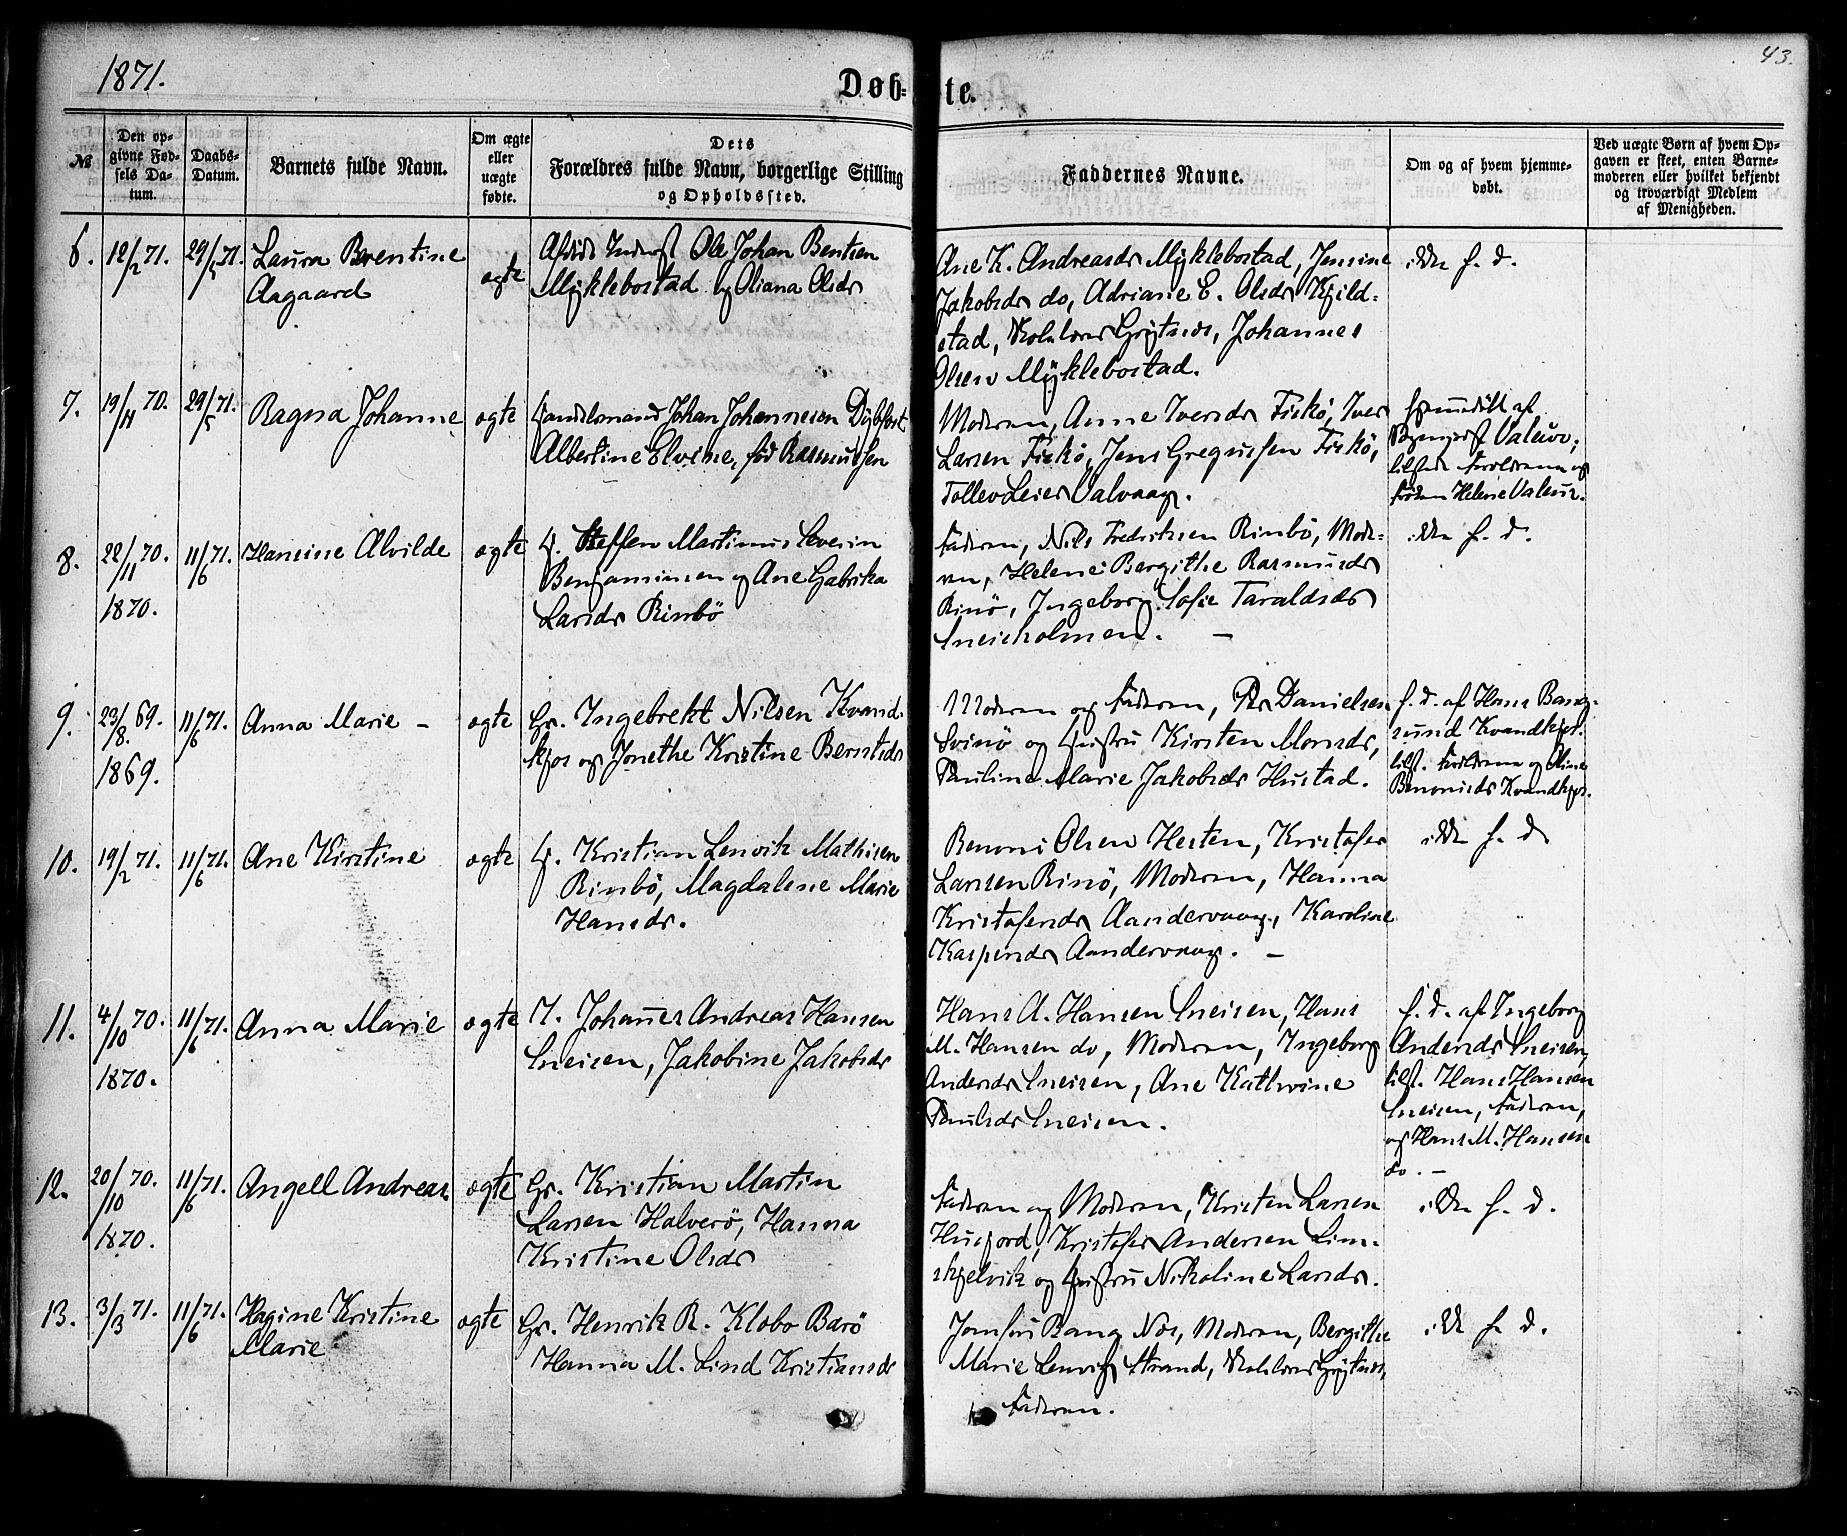 1871.
43.
Døb-
te.
№
Den op-
givne Fød-
sels Da-
tum.
Daabs-
Datum.
Barnets fulde Navn.
Om ægte
eller
uægte
fødte.
Dets
Forældres fulde Navn, borgerlige Stilling
og Opholdssted.
Faddernes Navne.
Om og af hvem hjemme-
døbt.
Ved uægte Børn af hvem Op-
gaven er skeet, enten Barne-
moderen eller hvilket bekjendt
og troværdigt Medlem
af Menigheden.
6.
12/2 71.
29/5 71.
Laura Berentine
Aagaard
ægte
Ole Johan Bentsen
Myklebostad og Oliana Olsdr
Ane K. Andreasdr Myklebostad, Jensine
Jakobsdr do, Adriane E. Olsdr Kjeld-
stad, Johannes
Olsen Myklebostad.
ikke h. d.
7.
19/11 70.
29/5 71.
Ragna Johanne
ægte
Handelsmand Johan Johannesen Dybfest
Albertine Elvine, fød Rasmussen
Moderen, Anne Iversdr Fiskø, Iver
Larsen Fiskø, Jens Gregussen Fiskø,
Valvaag.
Hjemmedøbt af
Sogneprst Valeur,
tilstede Forældrene og
Frøken Helene Valeur.
8.
22/11 70.
1870.
11/6 71.
Hansine Alvilde
ægte
H. Steffen Martinus Severin
Benjaminsen og Ane Gabrika
Larsdr Rinbø
Faderen, Nils Fredriksen Rinbø, Mode-
ren, Helene Bergithe Rasmusdr
Rinø, Ingeborg Sofie Taraldsdr
Sneisholmen. —
ikke h. d.
9.
23/8 69.
1869.
11/6 71.
Anna Marie —
ægte
Gr. Ingebrekt Nilsen Kvand-
kjos og Jonethe Kristine Berntsdr
Moderen og Faderen, Per Danielsen
Svinø og Hustru Kirsten Monsdr,
Pauline Marie Jakobsdr Hustad.
h. d. af Hans Bang-
sund Kvandkjos.
tilst. Forældrene og Oline
Benonisdr Kvandkjos.
10.
19/2 71.
11/6 71.
Ane Kirstine
ægte
H. Kristian Lenvik Mathisen
Rinbø, Magdalene Marie
Hansdr.
Benoni Olsen Hesten, Kristofer
Larsen Rinø, Moderen, Hanna
Kristofersdr Aandervaag, Karoline
Kaspersdr Aandervaag. —
ikke h. d
11.
4/10 70.
1870.
11/6 71.
Anna Marie
ægte
H. Johannes Andreas Hansen
Sneisen, Jakobine Jakobsdr
Hans A. Hansen Sneisen, Hans
M. Hansen do, Moderen, Ingeborg
Andersdr Sneisen, Ane Kathrine
Paulsdr Sneisen.
h. d. af Ingeborg
Andersdr Sneisen,
tilst. Hans Hansen
Sneisen, Faderen,
og Hans M. Hansen
do. —
12.
20/10 70.
1870.
11/6 71.
Angell Andreas
ægte
Gr. Kristian Martin
Larsen Halverø, Hanna
Kristine Olsdr
Faderen og Moderen, Kristen Larsen
Husfjord, Kristofer Andersen Lim-
skjelvik og Hustru Nikoline Larsdr.
ikke h. d.
13.
3/3 71.
11/6 71.
Hagine Kristine
Marie
ægte
Gr. Henrik R. Klobo Barø
Hanna M. Lind Kristiansdr
Jomfru Bang Nos, Moderen, Bergithe
Marie Lenvig Strand,
Faderen.
ikke h. d.